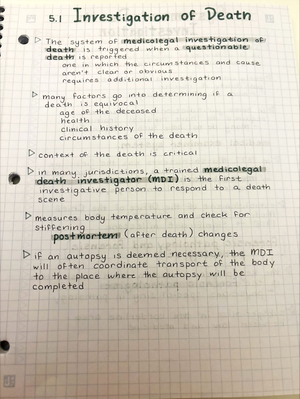 5.1 Investigation of Death
▷ The system of medicolegal investigation of
death is triggered when a questionable
death is reported
one in which the circumstances and cause
aren't clear or obvious
requires additional investigation
▷ many factors go into determining if a
death is equivocal
age of the deceased
health
clinical history
circumstances of the death
▷ context of the death is critical
▷ in many jurisdictions, a trained medicolegal
death investigator (MDI) is the first
investigative person to respond to a death
scene
▷ measures body temperature and check for
stiffening
postmortem (after death) changes
▷ if an autopsy is deemed necessary, the MDI
will often coordinate transport of the body
to the place where the autopsy will be
completed